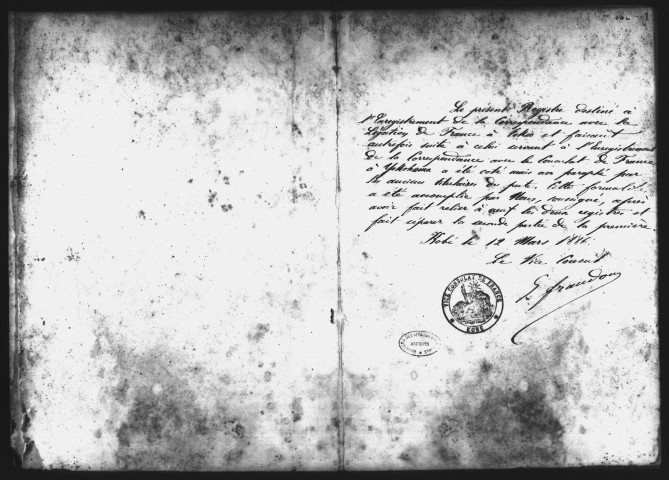 Le présent Registre destiné à
l'Enregistrement de la Correspondance avec la
Légation de France à Tokio et faisant
autrefois suite à celui servant à l'Enregistrement
de la Correspondance avec le Consulat de France
à Yokohama a été coté mais non paraphé par
les anciens titulaires du poste. Cette formalité
a été accomplie par Nous, soussigné, après
avoir fait relier à neuf les deux registres et
fait séparer la seconde partie de la première
Kobé le 12 Mars 1886.
Le Vice Consul
G. Fraudon
VICE CONSULAT DE FRANCE
KOBÉ
ARCHIVES